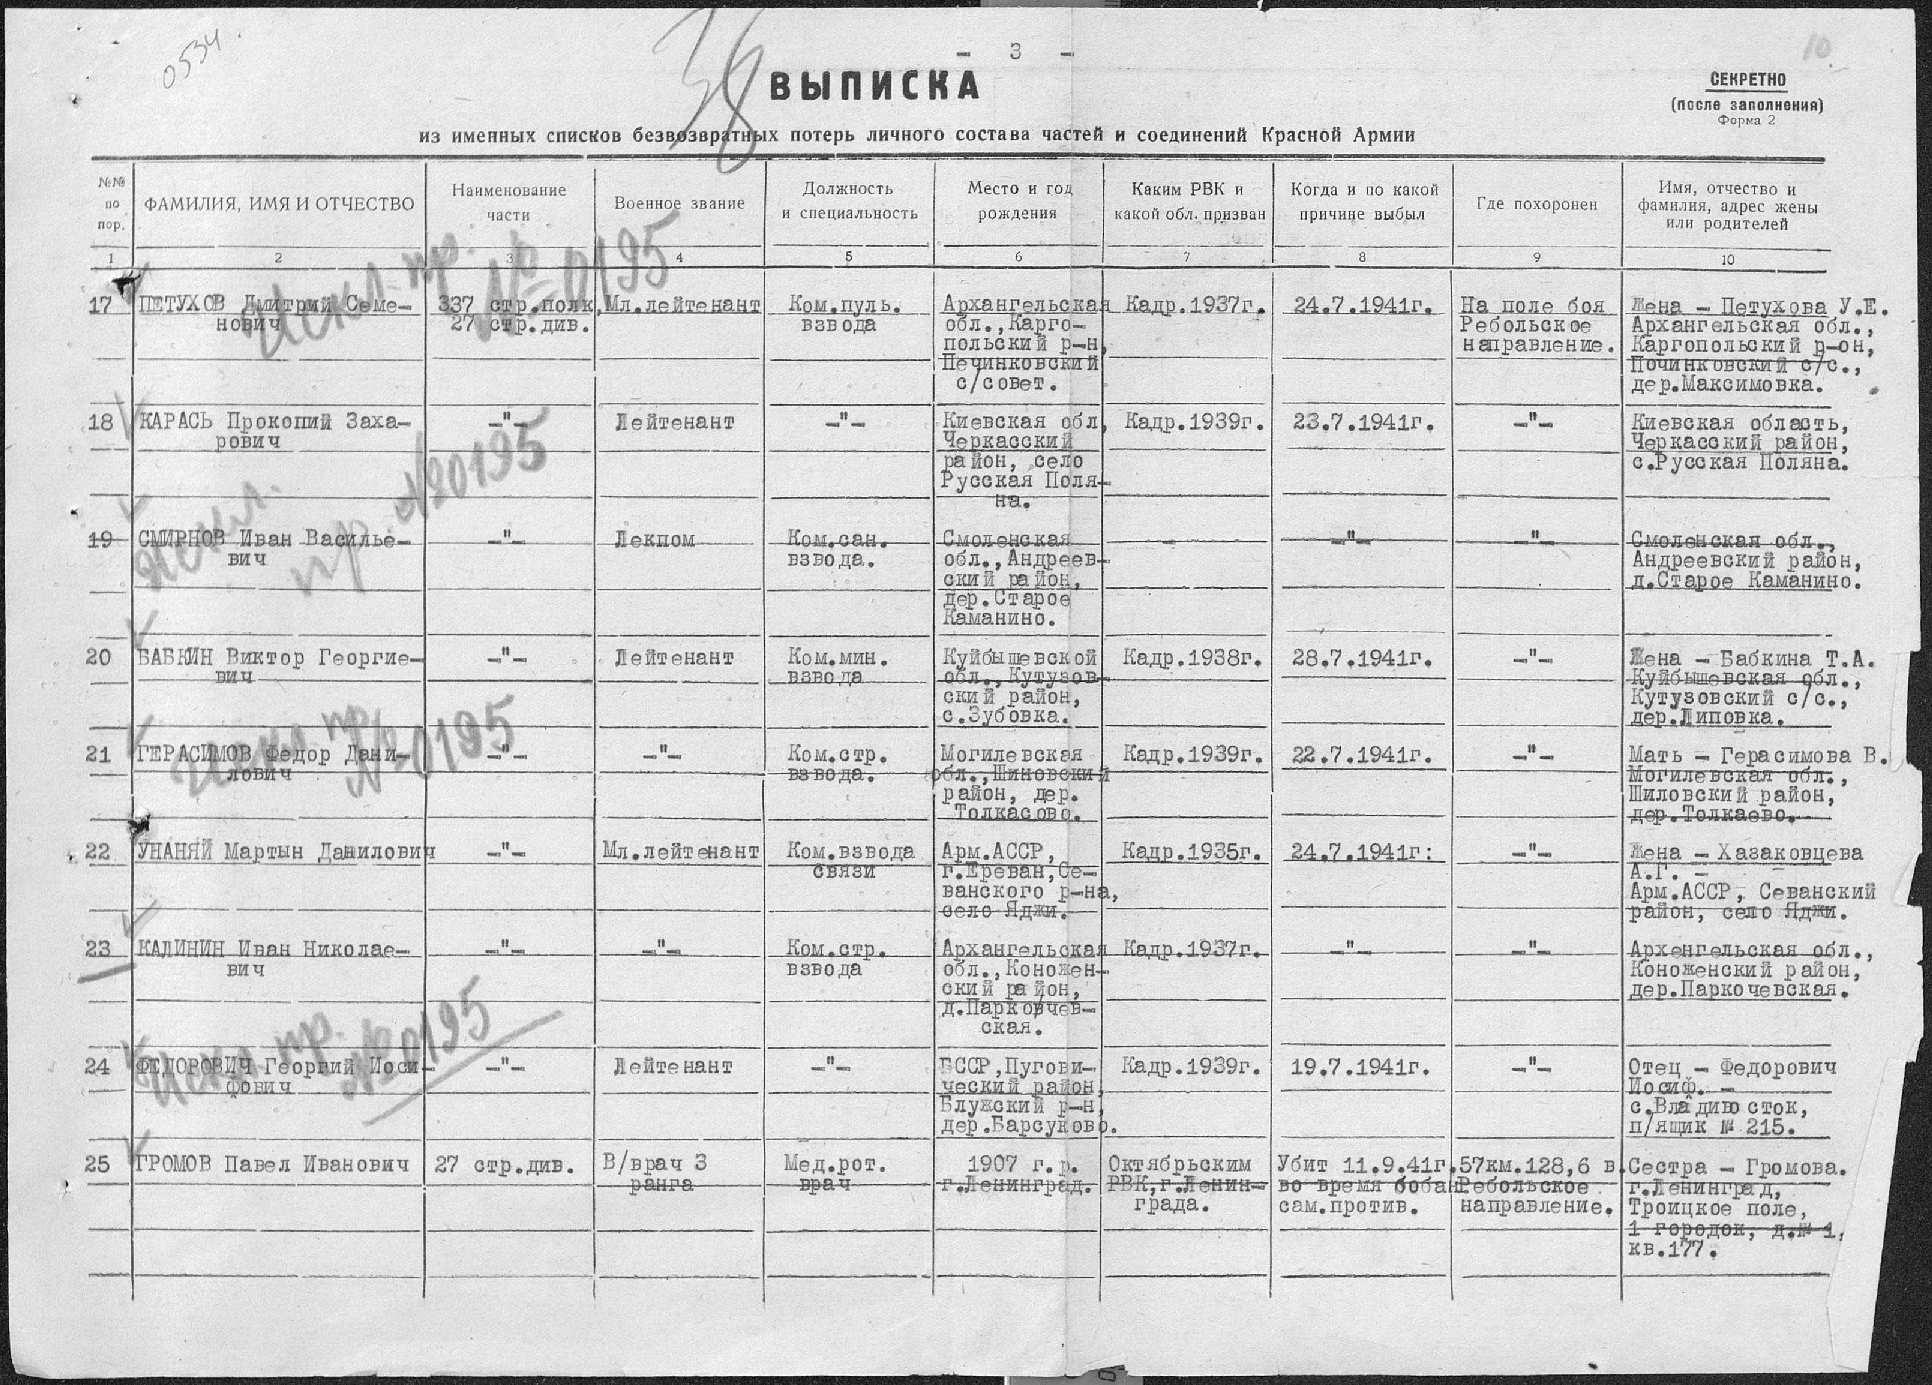 0534.
38
- 3 -
10.
ВЫПИСКА
СЕКРЕТНО
(после заполнения)
Форма 2
из именных списков безвозвратных потерь личного состава частей и соединений Красной Армии
№№ по пор.
ФАМИЛИЯ, ИМЯ И ОТЧЕСТВО
Наименование части
Военное звание
Должность и специальность
Место и год рождения
Каким РВК и какой обл. призван
Когда и по какой причине выбыл
Где похоронен
Имя, отчество и фамилия, адрес жены или родителей
1 2 3 4 5 6 7 8 9 10
Искл. пр. №0195
17 ПЕТУХОВ Дмитрий Семе- 337 стр.полк, Мл.лейтенант Ком.пуль. Архангельская Кадр.1937г. 24.7.1941г. На поле боя Жена - Петухова У.Е.
нович 27 стр.див. взвода обл.,Карго- Ребольское Архангельская обл.,
польский р-н, направление. Каргопольский р-он,
Печинковский Починковский с/с.,
с/совет. дер.Максимовка.
18 КАРАСЬ Прокопий Заха- -"- Лейтенант -"- Киевская обл, Кадр.1939г. 23.7.1941г. -"- Киевская область,
рович Черкасский Черкасский район,
район, село с.Русская Поляна.
Русская Поля-
на.
Искл. пр. №0195
19 СМИРНОВ Иван Василье- -"- Лекпом Ком.сан. Смоленская - -"- -"- Смоленская обл.,
вич взвода. обл.,Андреев- Андреевский район,
ский район, д.Старое Каманино.
дер.Старое
Каманино.
20 БАБКИН Виктор Георгие- -"- Лейтенант Ком.мин. Куйбышевской Кадр.1938г. 28.7.1941г. -"- Жена - Бабкина Т.А.
вич взвода обл.,Кутузов- Куйбышевская обл.,
ский район, Кутузовский с/с.,
с.Зубовка. дер.Липовка.
Искл пр №0195
21 ГЕРАСИМОВ Федор Дани- -"- -"- Ком.стр. Могилевская Кадр.1939г. 22.7.1941г. -"- Мать - Герасимова В.
лович взвода. обл.,Шиновский Могилевская обл.,
район, дер. Шиловский район,
Толкасово. дер.Толкаево.
22 УНАНЯЙ Мартын Данилович -"- Мл.лейтенант Ком.взвода Арм.АССР, Кадр.1935г. 24.7.1941г: -"- Жена - Хазаковцева
связи г.Ереван,Се- А.Г. -
ванского р-на, Арм.АССР, Севанский
село Яджи. район, село Яджи.
23 КАЛИНИН Иван Николае- -"- -"- Ком.стр. Архангельская Кадр.1937г. -"- -"- Архенгельская обл.,
вич взвода обл.,Коножен- Коноженский район,
ский район, дер.Паркочевская.
д.Паркочев-
ская.
Искл. пр. №0195
24 ФЕДОРОВИЧ Георгий Иоси- -"- Лейтенант -"- БССР,Пугови- Кадр.1939г. 19.7.1941г. -"- Отец - Федорович
фович ческий район, Иосиф. -
Блужский р-н, с.Владивосток,
дер.Барсуково. п/ящик № 215.
25 ГРОМОВ Павел Иванович 27 стр.див. В/врач 3 Мед.рот. 1907 г.р. Октябрьским Убит 11.9.41г. 57км.128,6 в. Сестра - Громова.
ранга врач г.Ленинград. РВК,г.Ленин- во время бобан Ребольское г.Ленинград,
града. сам.против. направление. Троицкое поле,
1 городок, д.№ 1,
кв.177.